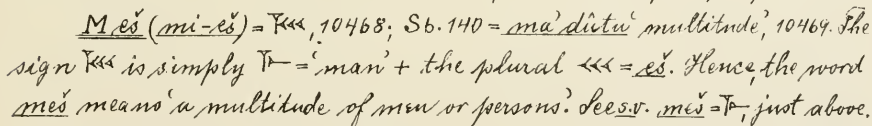 Meš (mi-eš) = 𒈨𒌍, 10468; Sb. 140 = ma'dûtu 'multitude', 10469. The
sign 𒈨𒌍 is simply 𒈨 = 'man' + the plural 𒌍 = eš. Hence, the word
meš means 'a multitude of men or persons'. See s.v. meš = 𒈨, just above.